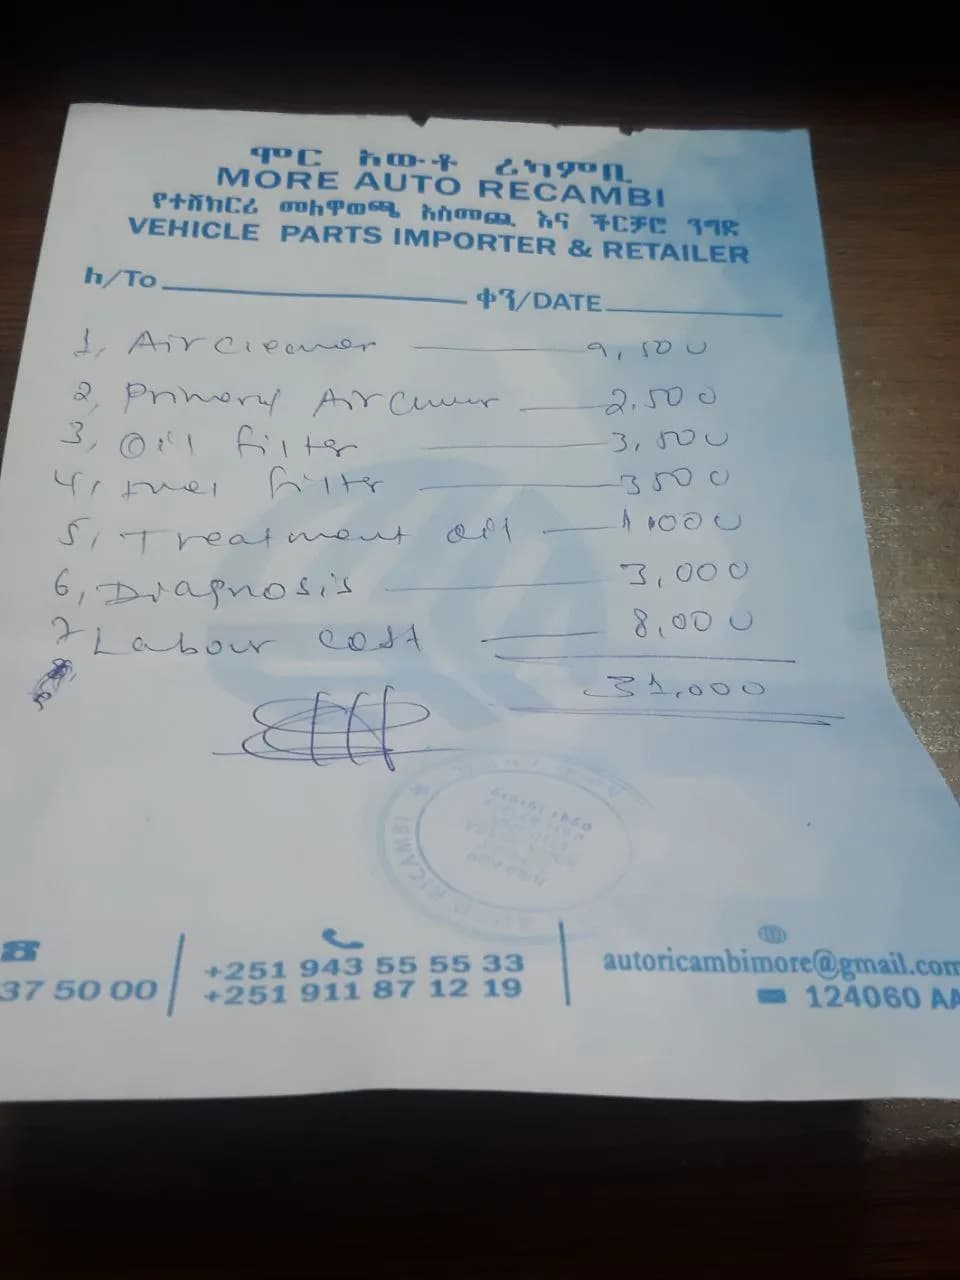 ሞር አውቶ ሪካምቢ
MORE AUTO RECAMBI
የተሽከርካሪ መለዋወጫ አስመጪ እና ችርቻሮ ንግድ
VEHICLE PARTS IMPORTER & RETAILER
ለ/To
ቀን/DATE
1, Air cleaner 9,500
2, Primary Air 2,500
3, Oil filter 3,500
4, fuel filter 3500
5, Treatment oil 1,000
6, Diagnosis 3,000
7 Labour cost 8,000
31,000
RICAMBI
37 50 00
+251 943 55 55 33
+251 911 87 12 19
autoricambimore@gmail.com
124060 AA